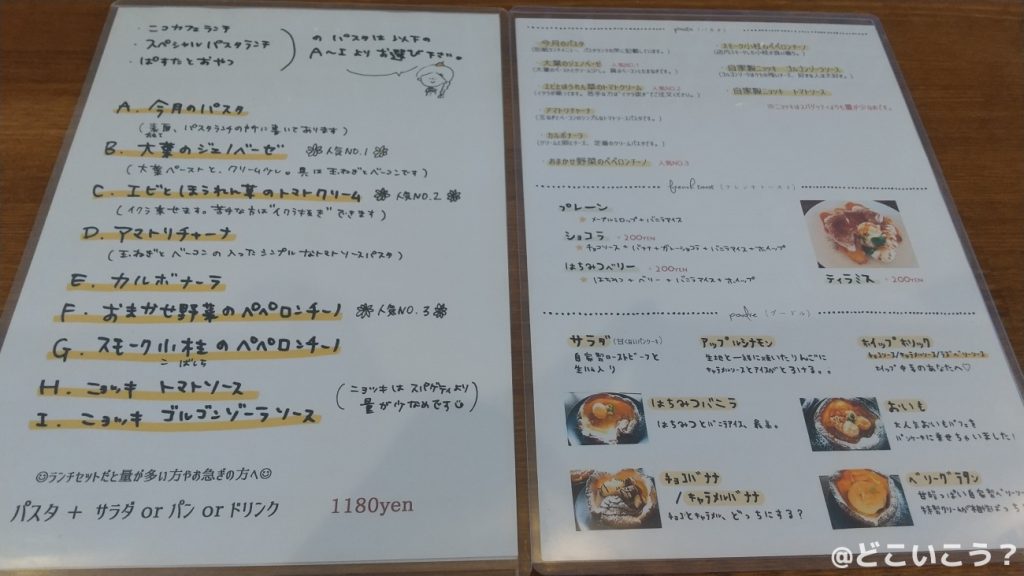 ・ニコカフェランチ
・スペシャルパスタランチ
・ぱすたとおやつ
のパスタは以下の
A〜Iよりお選び下さい。
A. 今月のパスタ
B. 大葉のジェノベーゼ 人気NO.1
(大葉ペーストと、クリーム少し。具は玉ねぎとベーコンです)
C. エビとほうれん草のトマトクリーム 人気NO.2
(イクラ乗せます。苦手な方は"イクラぬき"できます)
D. アマトリチャーナ
(玉ねぎとベーコンの入ったシンプルなトマトソースパスタ)
E. カルボナーラ
F. おまかせ野菜のペペロンチーノ 人気NO.3
G. スモーク小柱のペペロンチーノ
こばしら
H. ニョッキ トマトソース
I. ニョッキ ゴルゴンゾーラソース
(ニョッキはスパゲティより
量が少なめです)
ランチセットだと量が多い方やお急ぎの方へ
パスタ + サラダ or パン or ドリンク 1180yen
今月のパスタ
大葉のジェノベーゼ 人気NO.1
エビとほうれん草のトマトクリーム 人気NO.2
アマトリチャーナ
(玉ねぎとベーコンのシンプルなトマトソースパスタです。)
カルボナーラ
おまかせ野菜のペペロンチーノ 人気NO.3
スモーク小柱のペペロンチーノ
自家製ニョッキ ゴルゴンゾーラソース
自家製ニョッキ トマトソース
※ニョッキはスパゲッティよりも量が少なめです。
french toast (フレンチトースト)
プレーン
★ メープルシロップ + バニラアイス
ショコラ +200YEN
★ チョコソース + バナナ + ガトーショコラ + バニラアイス + ホイップ
はちみつベリー +200YEN
★ はちみつ + ベリー + バニラアイス + ホイップ
ティラミス +200YEN
サラダ (甘くないパンケーキ)
自家製ローストビーフと
生ハム入り
アップルシナモン
生地と一緒に焼いたりんごに
キャラメルソースとアイスがとろける。。
ホイップホリック
チョコソース/キャラメルソース/ラズベリーソース
ホイップ中毒のあなたへ♡
はちみつバニラ
はちみつとバニラアイス、最高。
おいも
大人気おいもパフェを
パンケーキに乗せちゃいました!
チョコバナナ
/キャラメルバナナ
チョコとキャラメル、どっちにする?
ベリーグラタン
@どこいこう?